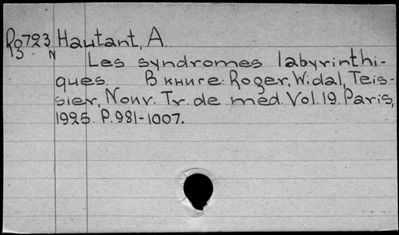 Rg723 Hautant, A.
3 N
Les syndromes labyrinthi-
ques. В книге: Roger, Widal, Teis-
sier, Nouv. Tr. de méd. Vol. 19. Paris,
1925. P. 981-1007.